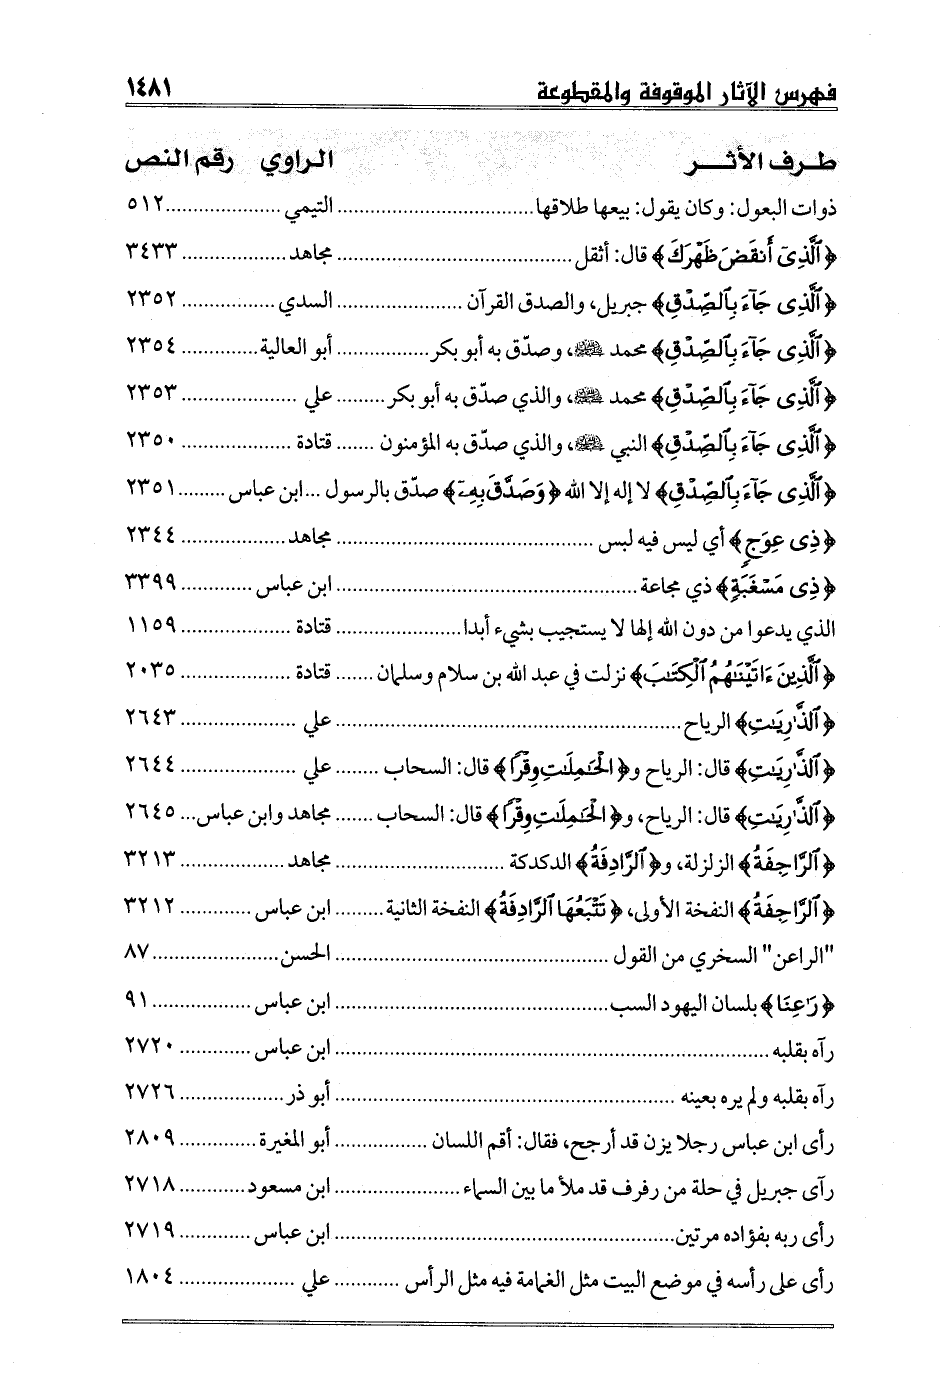 فهرس الآثار الموقوفة والمقطوعة ١٤٨١
طرف الأثر الراوي رقم النص
ذوات البعول: وكان يقول: بيعها طلاقها .................................. التيمي .................... ٥١٢
﴿ٱلَّذِىٓ أَنقَضَ ظَهْرَكَ﴾ قال: أثقل .......................................... مجاهد .................. ٣٤٣٣
﴿ٱلَّذِى جَآءَ بِٱلصِّدْقِ﴾ جبريل، والصدق القرآن ...................... السدي ................ ٢٣٥٢
﴿ٱلَّذِى جَآءَ بِٱلصِّدْقِ﴾ محمد ﷺ، وصدّق به أبو بكر ................ أبو العالية ............. ٢٣٥٤
﴿ٱلَّذِى جَآءَ بِٱلصِّدْقِ﴾ محمد ﷺ، والذي صدّق به أبو بكر ......... علي .................... ٢٣٥٣
﴿ٱلَّذِى جَآءَ بِٱلصِّدْقِ﴾ النبي ﷺ، والذي صدّق به المؤمنون ....... قتادة ................... ٢٣٥٠
﴿ٱلَّذِى جَآءَ بِٱلصِّدْقِ﴾ لا إله إلا الله ﴿وَصَدَّقَ بِهِۦٓ﴾ صدّق بالرسول ... ابن عباس ......... ٢٣٥١
﴿ذِى عِوَجٍ﴾ أي ليس فيه لبس ............................................. مجاهد .................. ٢٣٤٤
﴿ذِى مَسْغَبَةٍ﴾ ذي مجاعة .................................................... ابن عباس ............. ٣٣٩٩
الذي يدعوا من دون الله إلها لا يستجيب بشيء أبدا ...................... قتادة ................... ١١٥٩
﴿ٱلَّذِينَ ءَاتَيْنَٰهُمُ ٱلْكِتَٰبَ﴾ نزلت في عبد الله بن سلام وسلمان ....... قتادة ................... ٢٠٣٥
﴿ٱلذَّٰرِيَٰتِ﴾ الرياح ............................................................ علي .................... ٢٦٤٣
﴿ٱلذَّٰرِيَٰتِ﴾ قال: الرياح و﴿ٱلْحَٰمِلَٰتِ وِقْرًا﴾ قال: السحاب ........ علي .................... ٢٦٤٤
﴿ٱلذَّٰرِيَٰتِ﴾ قال: الرياح، و﴿ٱلْحَٰمِلَٰتِ وِقْرًا﴾ قال: السحاب ....... مجاهد وابن عباس ... ٢٦٤٥
﴿ٱلرَّاجِفَةُ﴾ الزلزلة، و﴿ٱلرَّادِفَةُ﴾ الدكدكة ............................. مجاهد .................. ٣٢١٣
﴿ٱلرَّاجِفَةُ﴾ النفخة الأولى، ﴿تَتْبَعُهَا ٱلرَّادِفَةُ﴾ النفخة الثانية ......... ابن عباس ............. ٣٢١٢
"الراعن" السخري من القول ................................................ الحسن ...................... ٨٧
﴿رَٰعِنَا﴾ بلسان اليهود السب ................................................ ابن عباس .................. ٩١
رآه بقلبه ........................................................................... ابن عباس ............. ٢٧٢٠
رآه بقلبه ولم يره بعينه .......................................................... أبو ذر .................. ٢٧٢٦
رأى ابن عباس رجلا يزن قد أرجح، فقال: أقم اللسان ................ أبو المغيرة ............. ٢٨٠٩
رآى جبريل في حلة من رفرف قد ملأ ما بين السماء ...................... ابن مسعود ............ ٢٧١٨
رأى ربه بفؤاده مرتين ............................................................ ابن عباس ............. ٢٧١٩
رأى على رأسه في موضع البيت مثل الغمامة فيه مثل الرأس ............ علي .................... ١٨٠٤